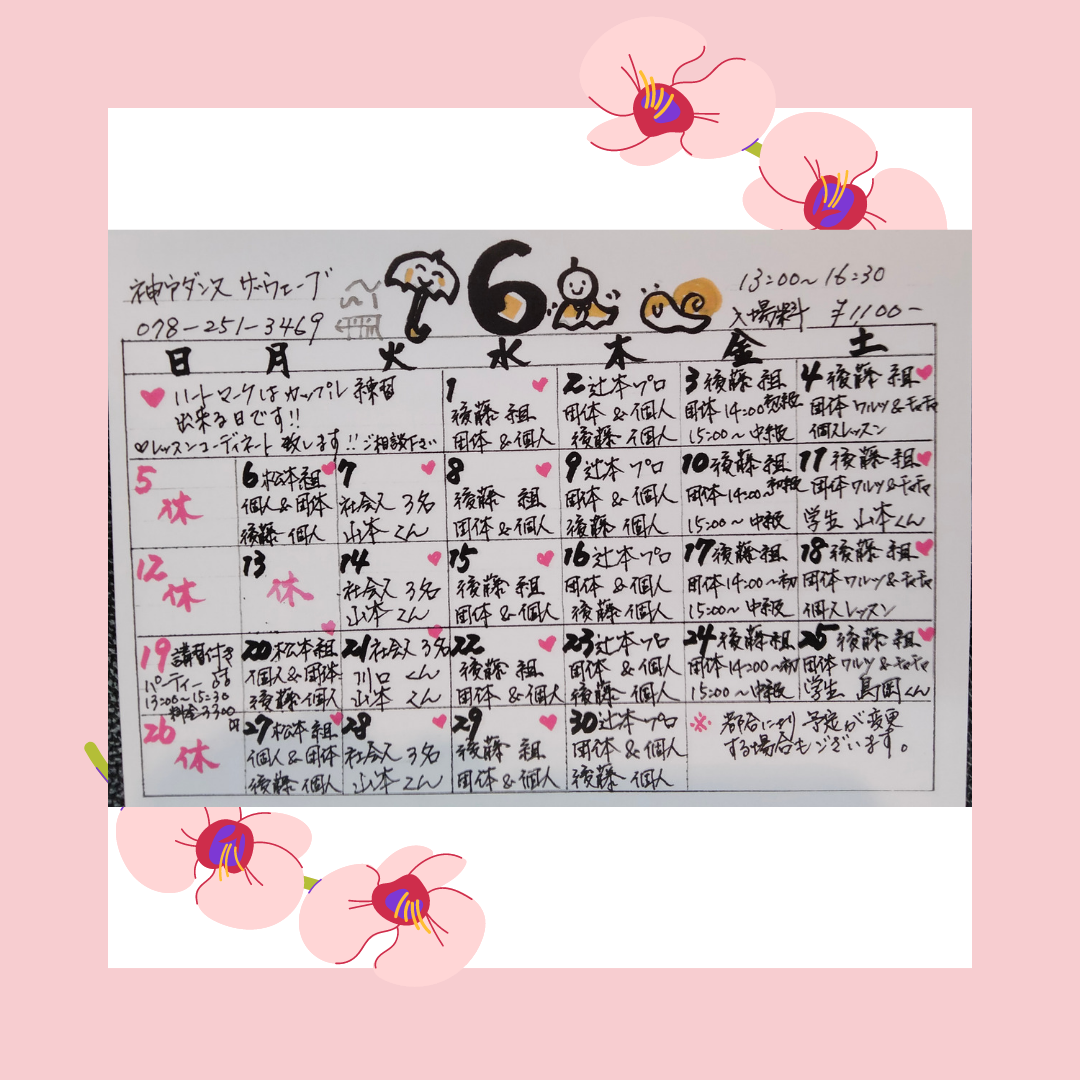 神戸ダンス ザ・ウェーブ
078-251-3469
6
13:00~16:30
入場料 ¥1100-
日 月 火 水 木 金 土
♥ハートマークはカップル練習
出来る日です!!
♡レッスンコーディネート致します!!ご相談下さい
1
後藤 組
団体 & 個人
2 辻本プロ
団体 & 個人
後藤 個人
3 後藤 組
団体 14:00初級
15:00~中級
4 後藤 組
団体 ワルツ&チャチャ
個人レッスン
5
休
6 松本組
個人&団体
後藤 個人
7
社会人 3名
山本くん
8
後藤 組
団体 & 個人
9 辻本プロ
団体 & 個人
後藤 個人
10 後藤 組
団体14:00~初級
15:00~中級
11 後藤 組
団体 ワルツ&チャチャ
学生 山本くん
12
休
13
休
14
社会人 3名
山本くん
15
後藤 組
団体 & 個人
16 辻本プロ
団体 & 個人
後藤 個人
17 後藤 組
団体14:00~初
15:00~中級
18 後藤 組
団体 ワルツ&チャチャ
個人レッスン
19 講習付き
パーティー
13:00~15:30
料金3300円
20 松本組
個人&団体
後藤 個人
21 社会人 3名
川口 くん
山本 くん
22
後藤 組
団体 & 個人
23 辻本プロ
団体 & 個人
後藤 個人
24 後藤 組
団体14:00~初
15:00~中級
25 後藤 組
団体 ワルツ&チャチャ
学生 島岡くん
26
休
27 松本組
個人&団体
後藤 個人
28
社会人 3名
山本くん
29
後藤 組
団体 & 個人
30 辻本プロ
団体 & 個人
後藤 個人
※ 都合により 予定が変更
する場合もございます。